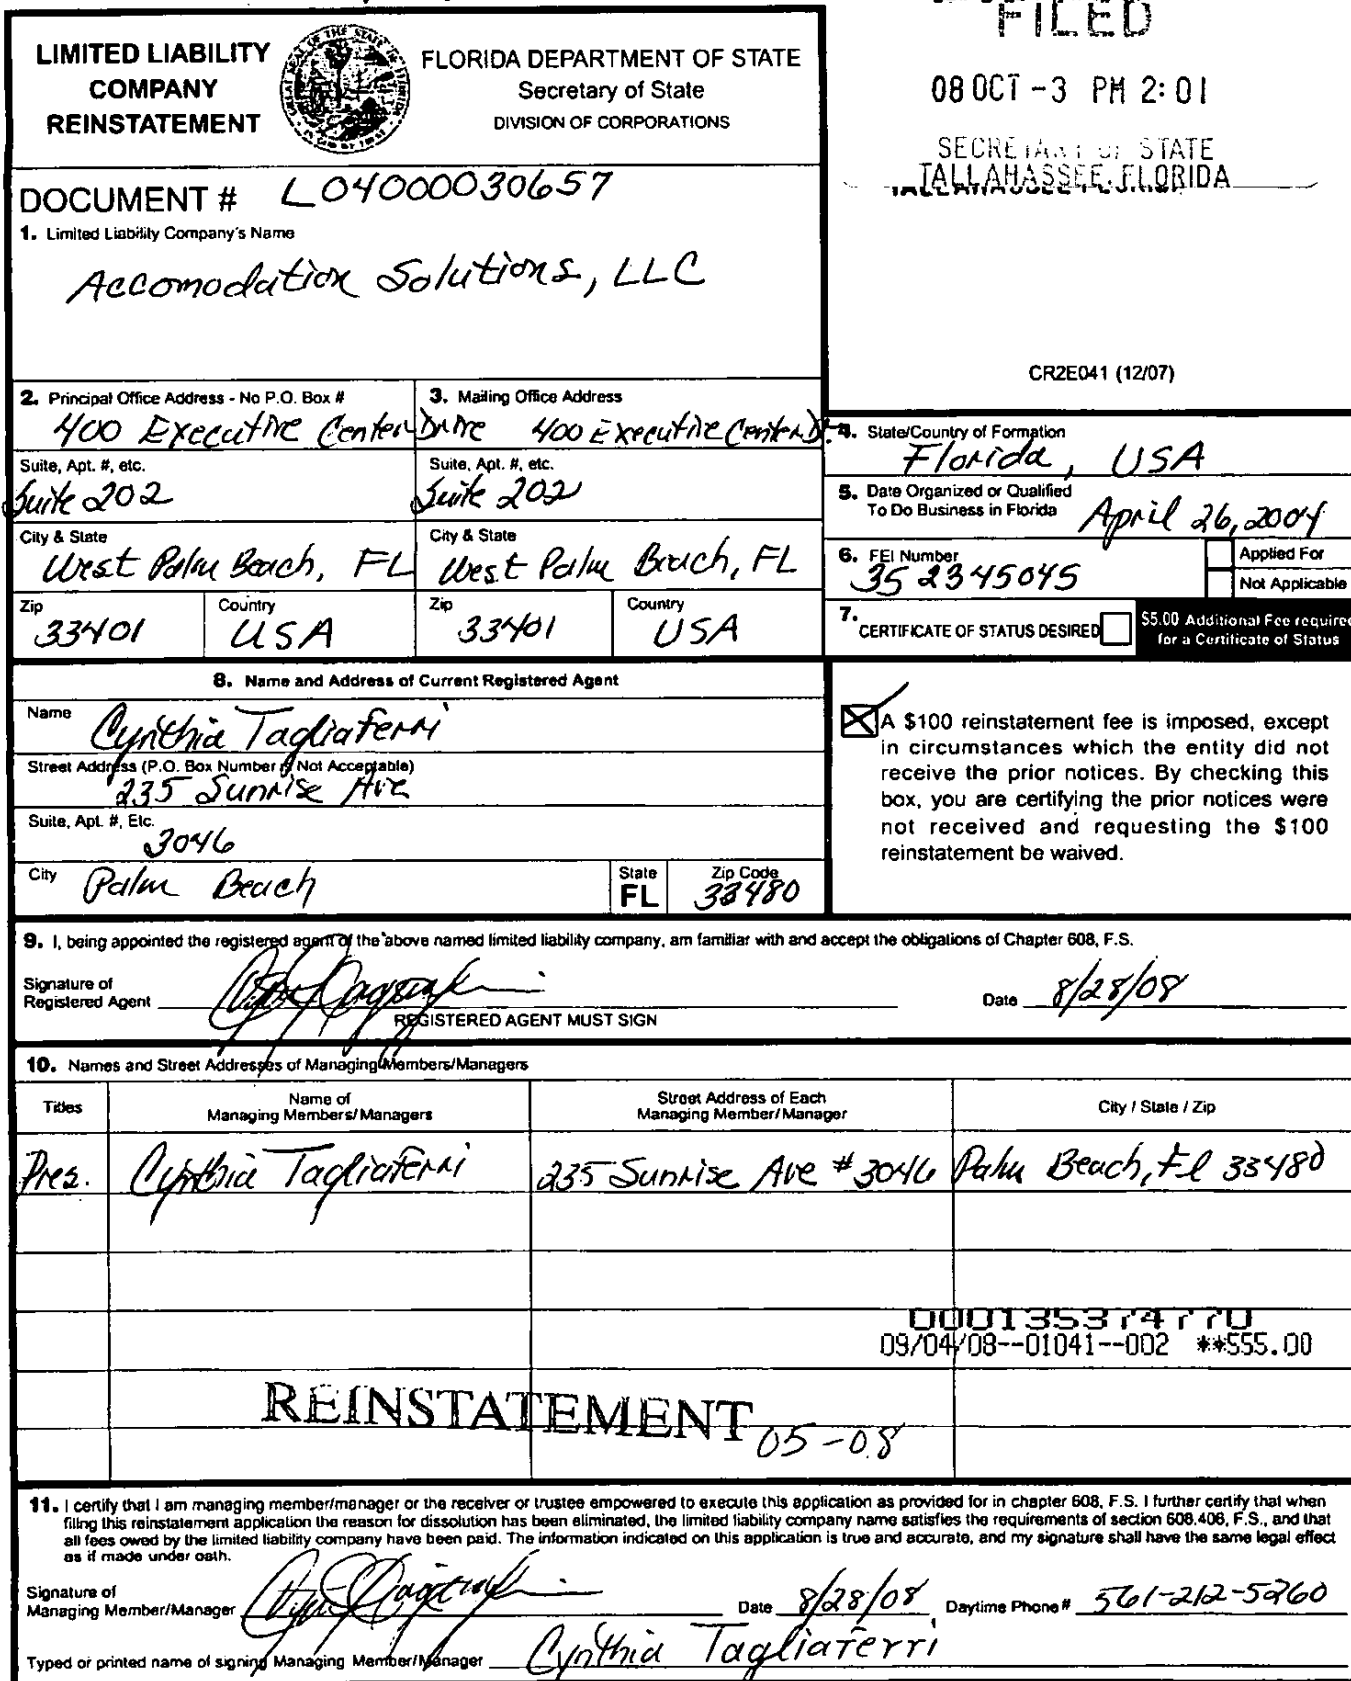 FILED
LIMITED LIABILITY COMPANY REINSTATEMENT
FLORIDA DEPARTMENT OF STATE
Secretary of State
DIVISION OF CORPORATIONS
08 OCT -3 PM 2:01
SECRETARY OF STATE
TALLAHASSEE, FLORIDA
DOCUMENT # L04000030657
1. Limited Liability Company's Name
Accomodation Solutions, LLC
CR2E041 (12/07)
2. Principal Office Address - No P.O. Box #
400 Executive Center Drive
Suite, Apt. #, etc.
Suite 202
City & State
West Palm Beach, FL
Zip
33401
Country
USA
3. Mailing Office Address
400 Executive Center D.
Suite, Apt. #, etc.
Suite 202
City & State
West Palm Beach, FL
Zip
33401
Country
USA
4. State/Country of Formation
Florida, USA
5. Date Organized or Qualified
To Do Business in Florida
April 26, 2004
6. FEI Number
352345045
Applied For
Not Applicable
7. CERTIFICATE OF STATUS DESIRED
$5.00 Additional Fee required
for a Certificate of Status
8. Name and Address of Current Registered Agent
Name
Cynthia Tagliaferri
Street Address (P.O. Box Number is Not Acceptable)
235 Sunrise Ave
Suite, Apt. #, Etc.
3046
City
Palm Beach
State
FL
Zip Code
33480
A $100 reinstatement fee is imposed, except
in circumstances which the entity did not
receive the prior notices. By checking this
box, you are certifying the prior notices were
not received and requesting the $100
reinstatement be waived.
9. I, being appointed the registered agent of the above named limited liability company, am familiar with and accept the obligations of Chapter 608, F.S.
Signature of
Registered Agent
REGISTERED AGENT MUST SIGN
Date 8/28/08
10. Names and Street Addresses of Managing Members/Managers
Titles
Name of
Managing Members/Managers
Street Address of Each
Managing Member/Manager
City / State / Zip
Pres. Cynthia Tagliaferri 235 Sunrise Ave #3046 Palm Beach, Fl 33480
000135374770
09/04/08--01041--002 **555.00
REINSTATEMENT 05-08
11. I certify that I am managing member/manager or the receiver or trustee empowered to execute this application as provided for in chapter 608, F.S. I further certify that when
filing this reinstatement application the reason for dissolution has been eliminated, the limited liability company name satisfies the requirements of section 608.406, F.S., and that
all fees owed by the limited liability company have been paid. The information indicated on this application is true and accurate, and my signature shall have the same legal effect
as if made under oath.
Signature of
Managing Member/Manager
Date 8/28/08
Daytime Phone # 561-212-5260
Typed or printed name of signing Managing Member/Manager Cynthia Tagliaferri